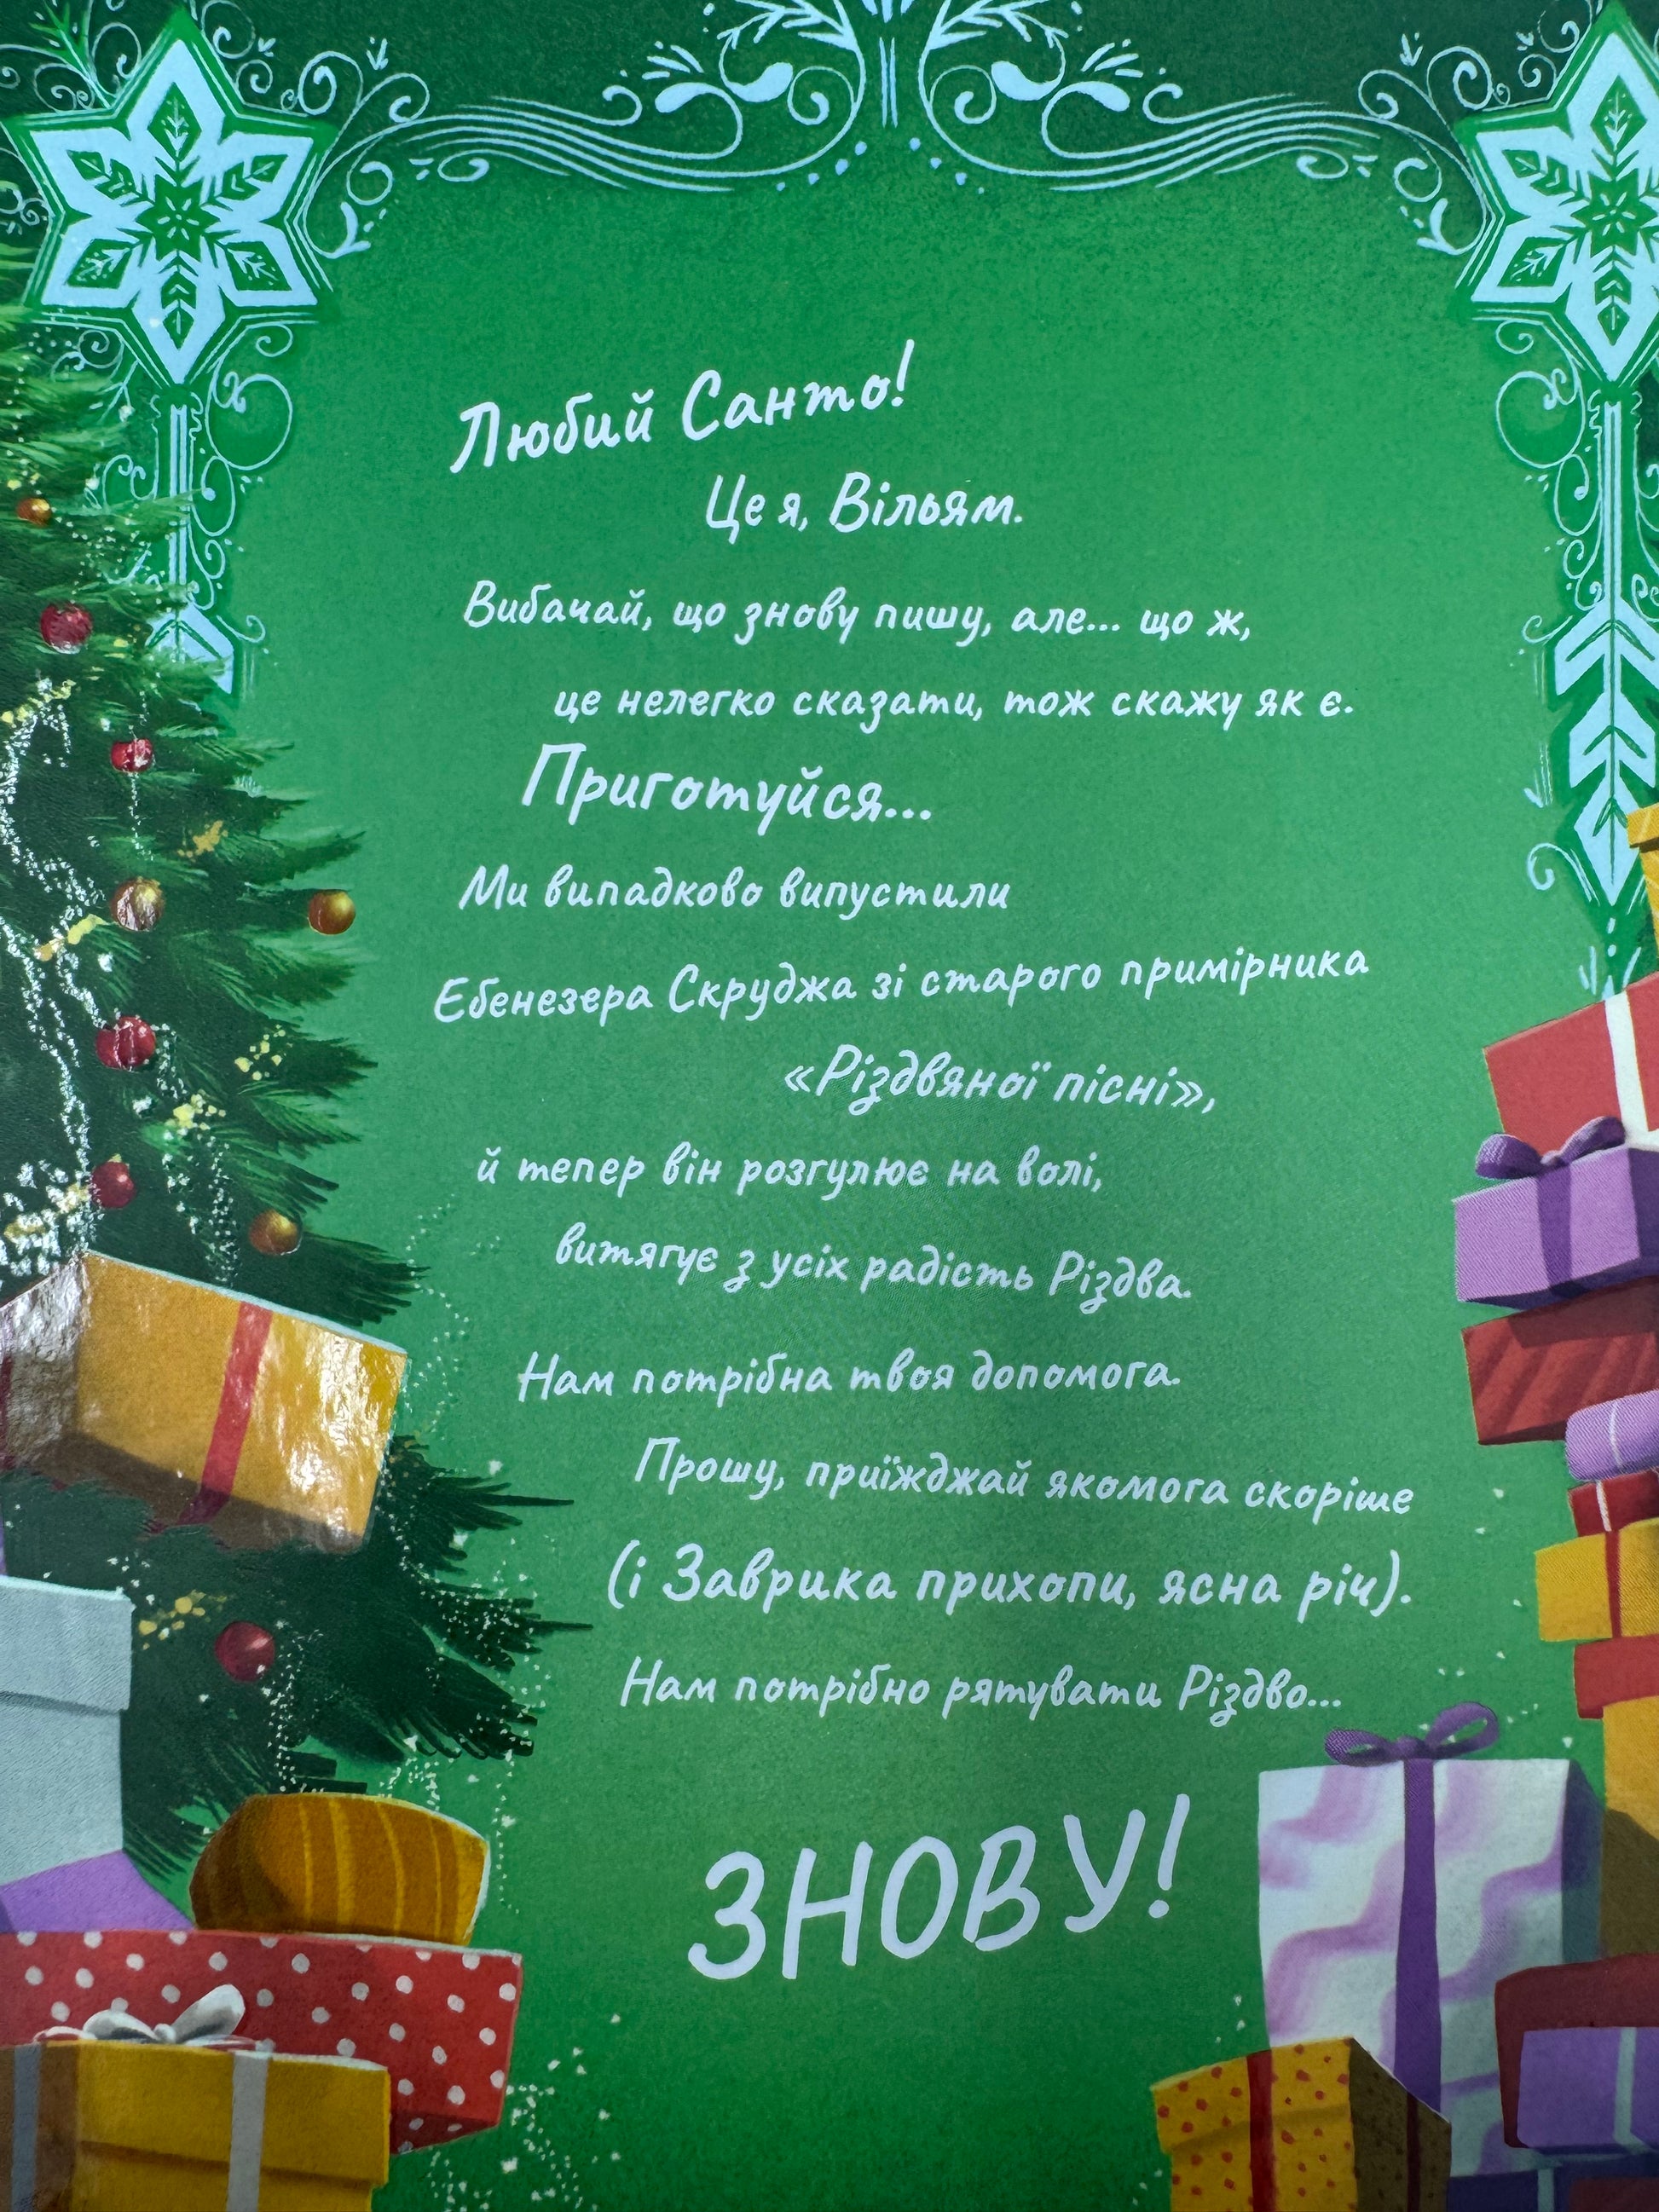 Любий Санто!
Це я, Вільям.
Вибачай, що знову пишу, але... що ж,
це нелегко сказати, тож скажу як є.
Приготуйся...
Ми випадково випустили
Ебенезера Скруджа зі старого примірника
«Різдвяної пісні»,
й тепер він розгулює на волі,
витягує з усіх радість Різдва.
Нам потрібна твоя допомога.
Прошу, приїжджай якомога скоріше
(і Заврика прихопи, ясна річ).
Нам потрібно рятувати Різдво...
ЗНОВУ!